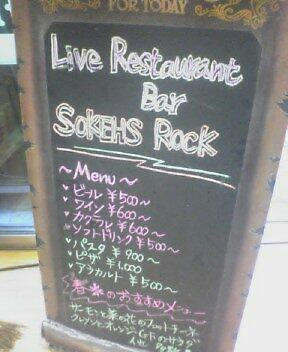 FOR TODAY
Live Restaurant
Bar
SOKEHS ROCK
~Menu~
ビール ¥500~
ワイン ¥600~
カクテル ¥600~
ソフトドリンク ¥500~
パスタ ¥900~
ピザ ¥1,000
アラカルト ¥500~
春のおすすめメニュー
サーモンと菜の花のフェットチーネ
クレソンとオレンジのサラダ